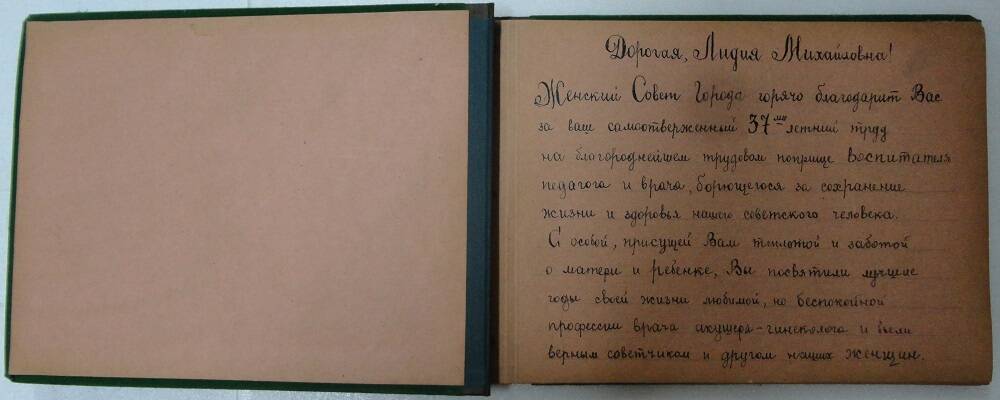 Дорогая, Лидия Михайловна!
Женский Совет Города горячо благодарит Вас
за ваш самоотверженный 37ми летний труд
на благороднейшем трудовом поприще воспитателя
педагога и врача, борющегося за сохранение
жизни и здоровья нашего советского человека.
С особой, присущей Вам теплотой и заботой
о матери и ребенке, Вы посвятили лучшие
годы своей жизни любимой, но беспокойной
профессии врача акушера-гинеколога и были
верным советчиком и другом наших женщин.